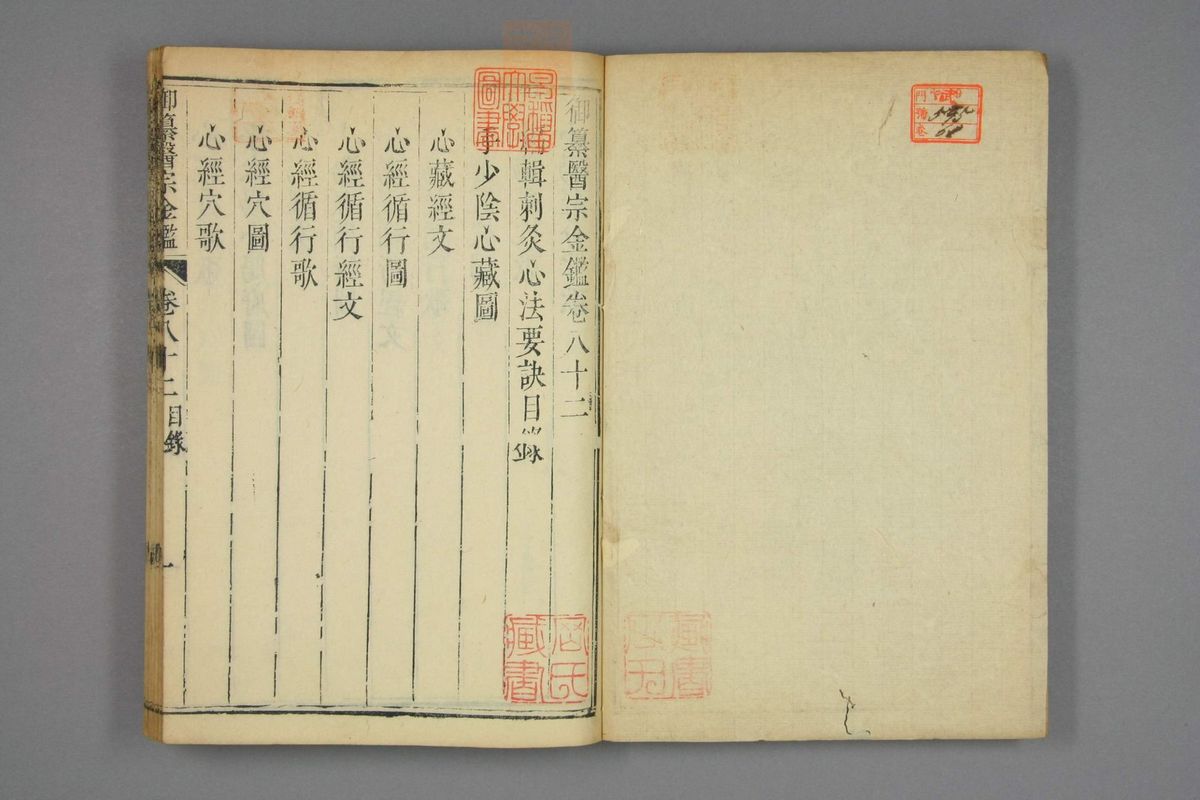 御纂醫宗金鑑卷八十二
輯刺灸心法要訣目錄
手少陰心藏圖
心藏經文
心經循行圖
心經循行經文
心經循行歌
心經穴圖
心經穴歌
御纂醫宗金鑑 卷八十二 目錄 一
圖書
氏藏書